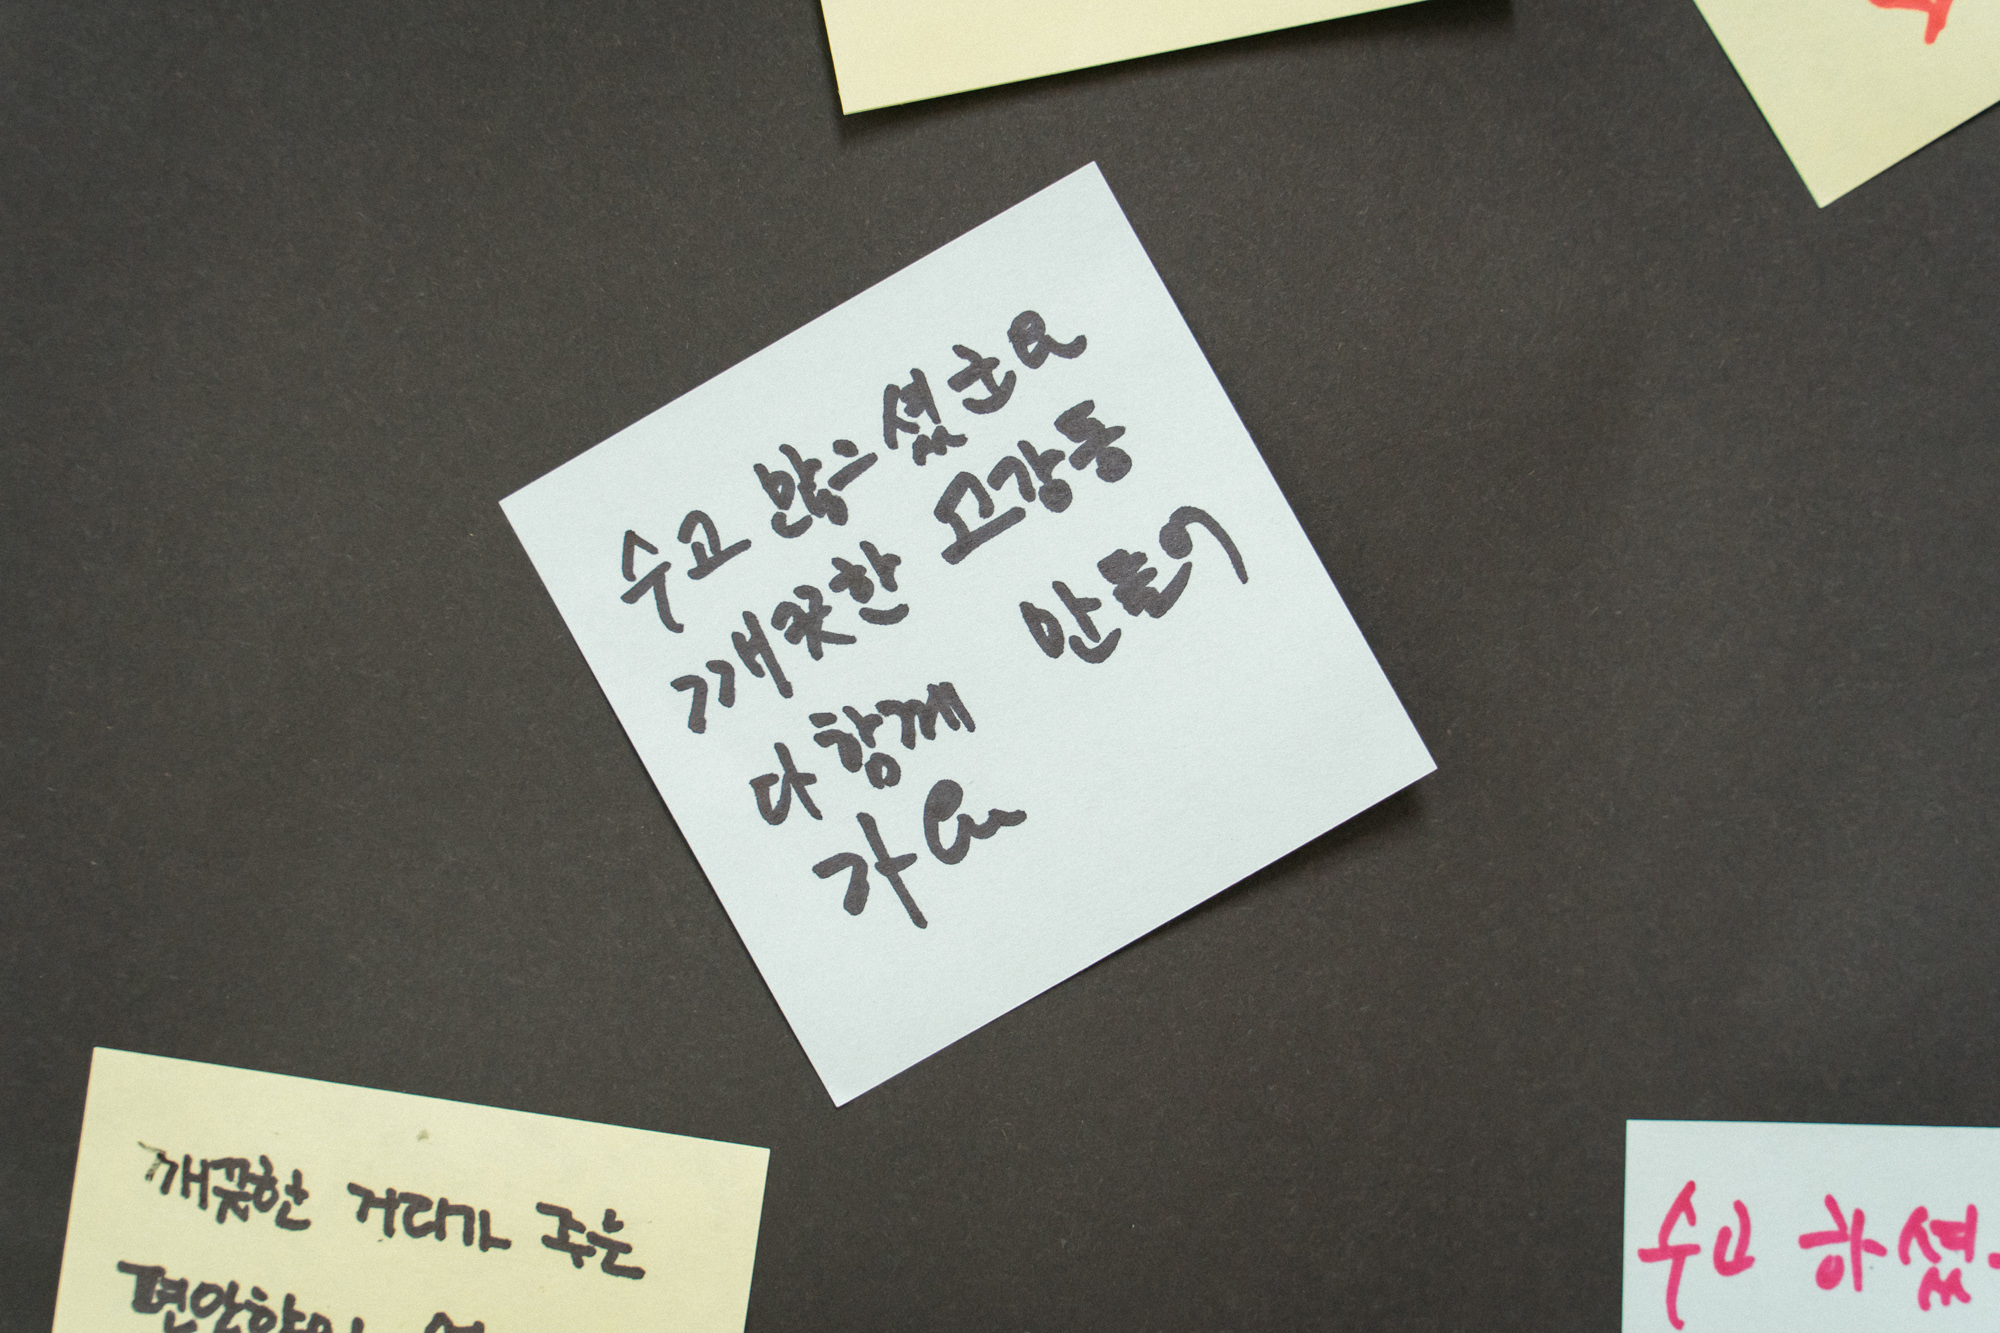 수고 많으셨군요
깨끗한 고강동
다함께 만들어
가요
깨끗한 거리가 주는
편안함이
수고 하셨